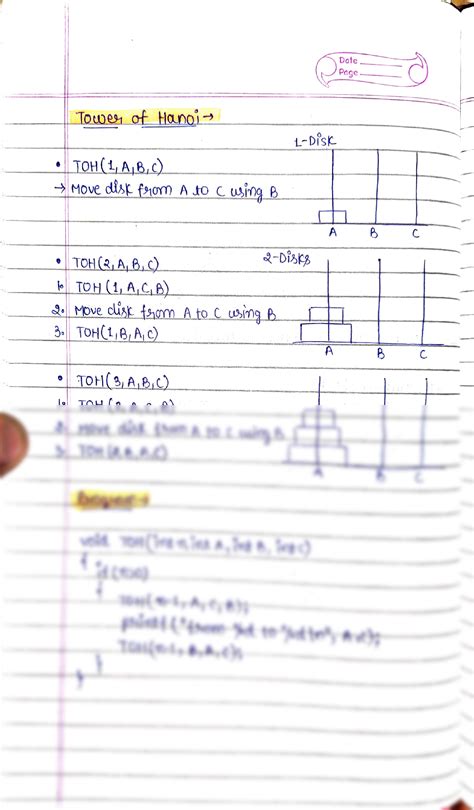 Date
Page
Tower of Hanoi →
1-Disk
• TOH(1,A,B,C)
→ Move disk from A to C using B
A B C
• TOH(2,A,B,C)
2-Disks
1. TOH(1,A,C,B)
2. Move disk from A to C using B
3. TOH(1,B,A,C)
A B C
• TOH(3,A,B,C)
1. TOH(2,A,C,B)
2. Move disk from A to C using B
3. TOH(
A B C
Program →
void TOH(int n, int A, int B, int C)
{
if(n>0)
{
TOH(n-1, A, C, B);
printf("from %d to %d\n", A, C);
TOH(n-1, B, A, C);
}
}